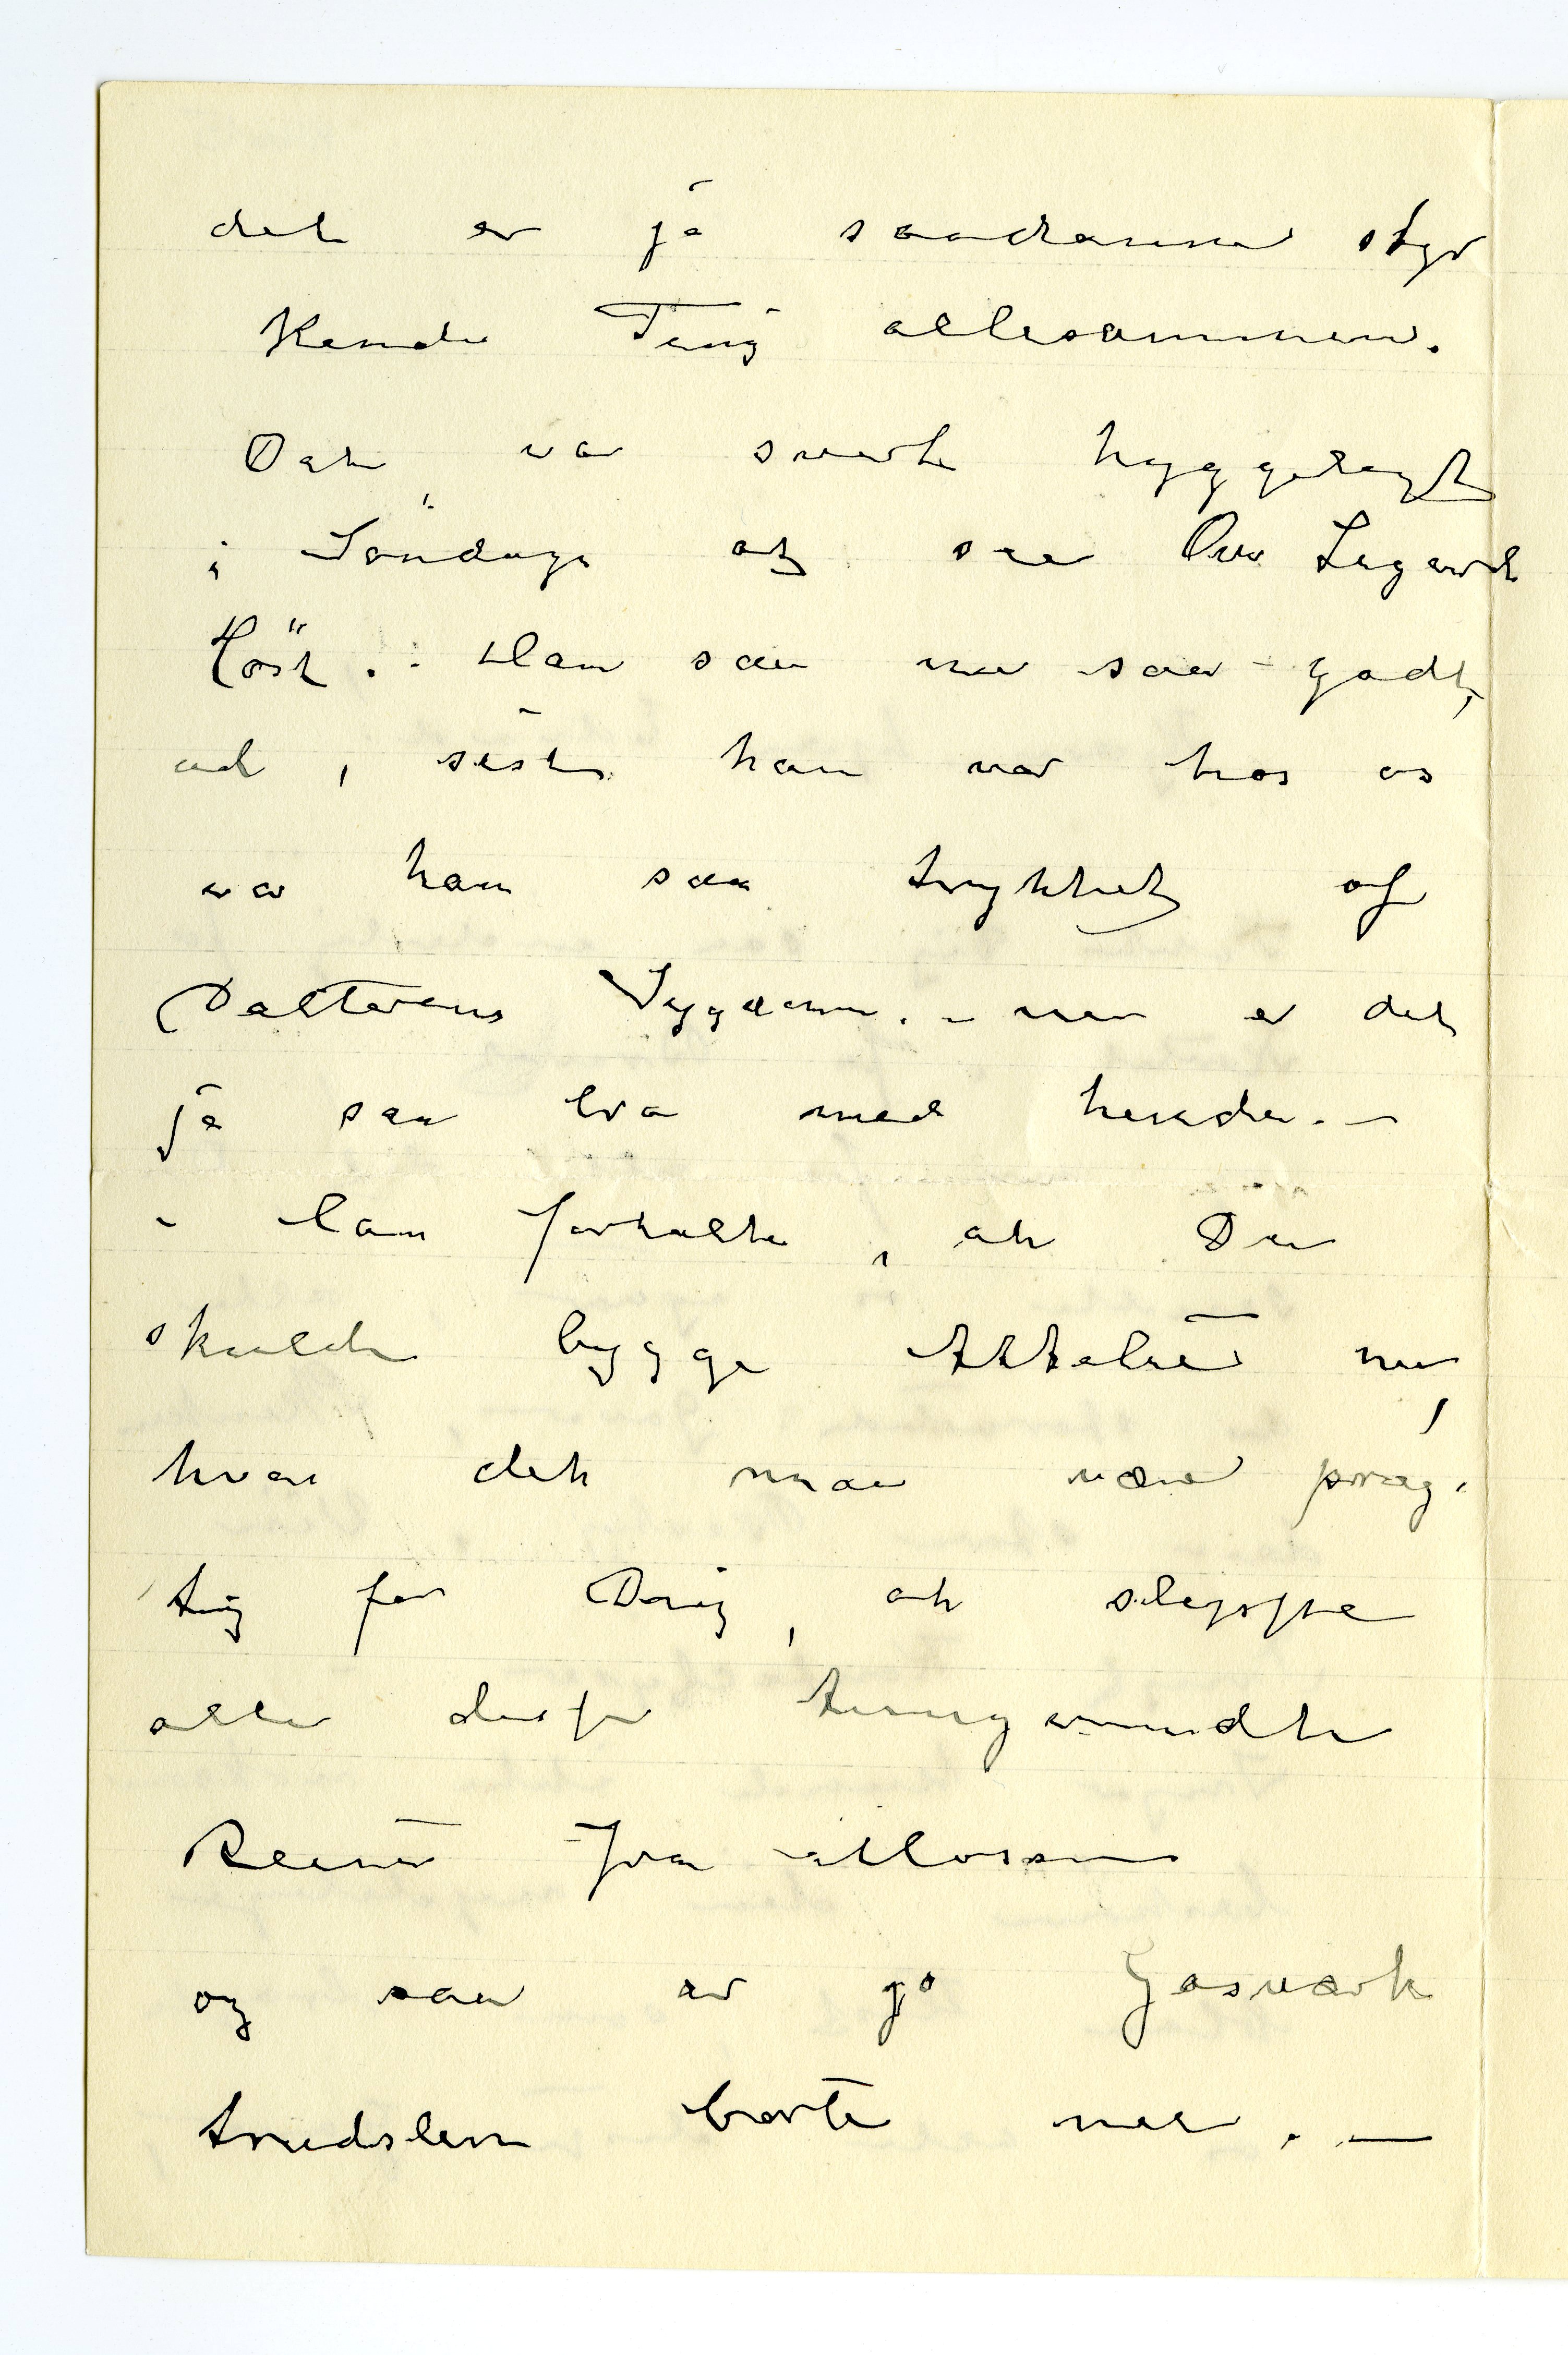 det er jo saadanne styr
kende Ting allesammen.
Det var svært hyggeligt
i Søndags at see Ove
Høst. Han saa nu saa godt
ud, sidst han var hos os
var han saa trykket af
Datterens Sygdom. – nu er det
jo saa bra med hende. –
– han fortalte, at Du
skulde bygge Atteliér nu,
hvor det maa være præg-
tig for Dig, at sleppe
alle disse tungvindte
Reiser fra
og saa er jo Gasværk
trudslen borte nu. –